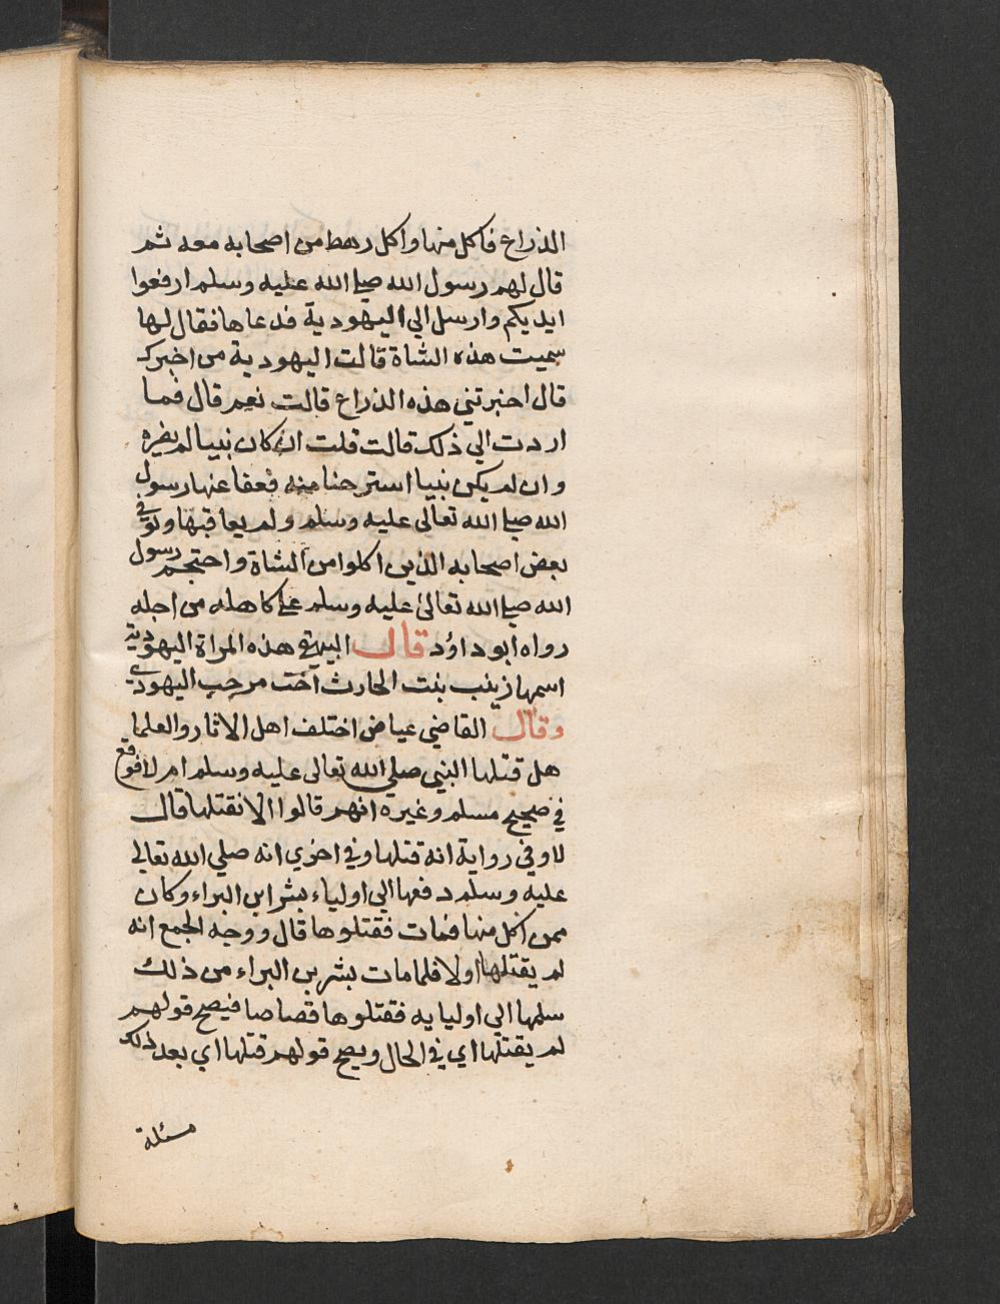 الذراع فاكل منها واكل رهط من اصحابه معه ثم
قال لهم رسول الله صلي الله عليه وسلم ارفعوا
ايديكم وارسل الي اليهودية فدعاها فقال لها
سميت هذه الشاة قالت اليهودية من اخبرك
قال اخبرتني هذه الذراع قالت نعم قال فما
اردت الي ذلك قالت قلت ان كان نبيا لم يضره
وان لم يكن نبيا استرحنا منه فعفا عنها رسول
الله صلي الله تعالى عليه وسلم ولم يعاقبها وتوفي
بعض اصحابه الذين اكلوا من الشاة واحتجم رسول
الله صلي الله تعالى عليه وسلم علي كاهله من اجله
رواه ابو داؤد قال البيهقي هذه المراة اليهودية
اسمها زينب بنت الحارث اخت مرحب اليهودي
وقال القاضي عياض اختلف اهل الاثار والعلما
هل قتلها النبي صلي الله تعالى عليه وسلم ام لا فوقع
في صحيح مسلم وغيره انهم قالوا الا نقتلها قال
لا وفي رواية انه قتلها وفي اخري انه صلي الله تعالي
عليه وسلم دفعها الي اولياء بشر ابن البراء وكان
ممن اكل منها فمات فقتلوها قال ووجه الجمع انه
لم يقتلها اولا فلما مات بشر بن البراء من ذلك
سلمها الي اوليايه فقتلوها قصاصا فيصح قولهم
لم يقتلها اي في الحال ويصح قولهم قتلها اي بعد ذلك
مسئلة